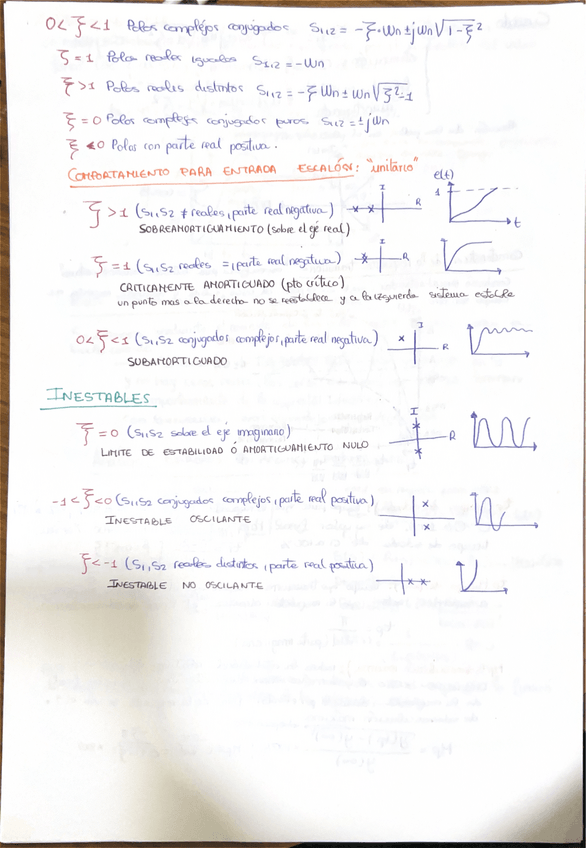 0<ξ<1 Polos complejos conjugados S1,2 = -ξ·Wn ± jWn√1-ξ²
ξ=1 Polos reales iguales S1,2 = -Wn
ξ>1 Polos reales distintos S1,2 = -ξWn ± Wn√ξ²-1
ξ=0 Polos complejos conjugados puros S1,2 = ±jWn
ξ<0 Polos con parte real positiva.
COMPORTAMIENTO PARA ENTRADA ESCALÓN: "unitario"
e(t)
ξ>1 (S1,S2 ≠ reales, parte real negativa) I R 1 t
SOBREAMORTIGUAMIENTO (sobre el eje real)
ξ=1 (S1,S2 reales =, parte real negativa) I R
CRITICAMENTE AMORTIGUADO (pto crítico)
un punto mas a la derecha no se reestablece y a la izquierda sistema estable
0<ξ<1 (S1,S2 conjugados complejos, parte real negativa) I R
SUBAMORTIGUADO
INESTABLES
ξ=0 (S1,S2 sobre el eje imaginario) I R
LIMITE DE ESTABILIDAD Ó AMORTIGUAMIENTO NULO
-1<ξ<0 (S1,S2 conjugados complejos, parte real positiva)
INESTABLE OSCILANTE
ξ<-1 (S1,S2 reales distintos, parte real positiva)
INESTABLE NO OSCILANTE